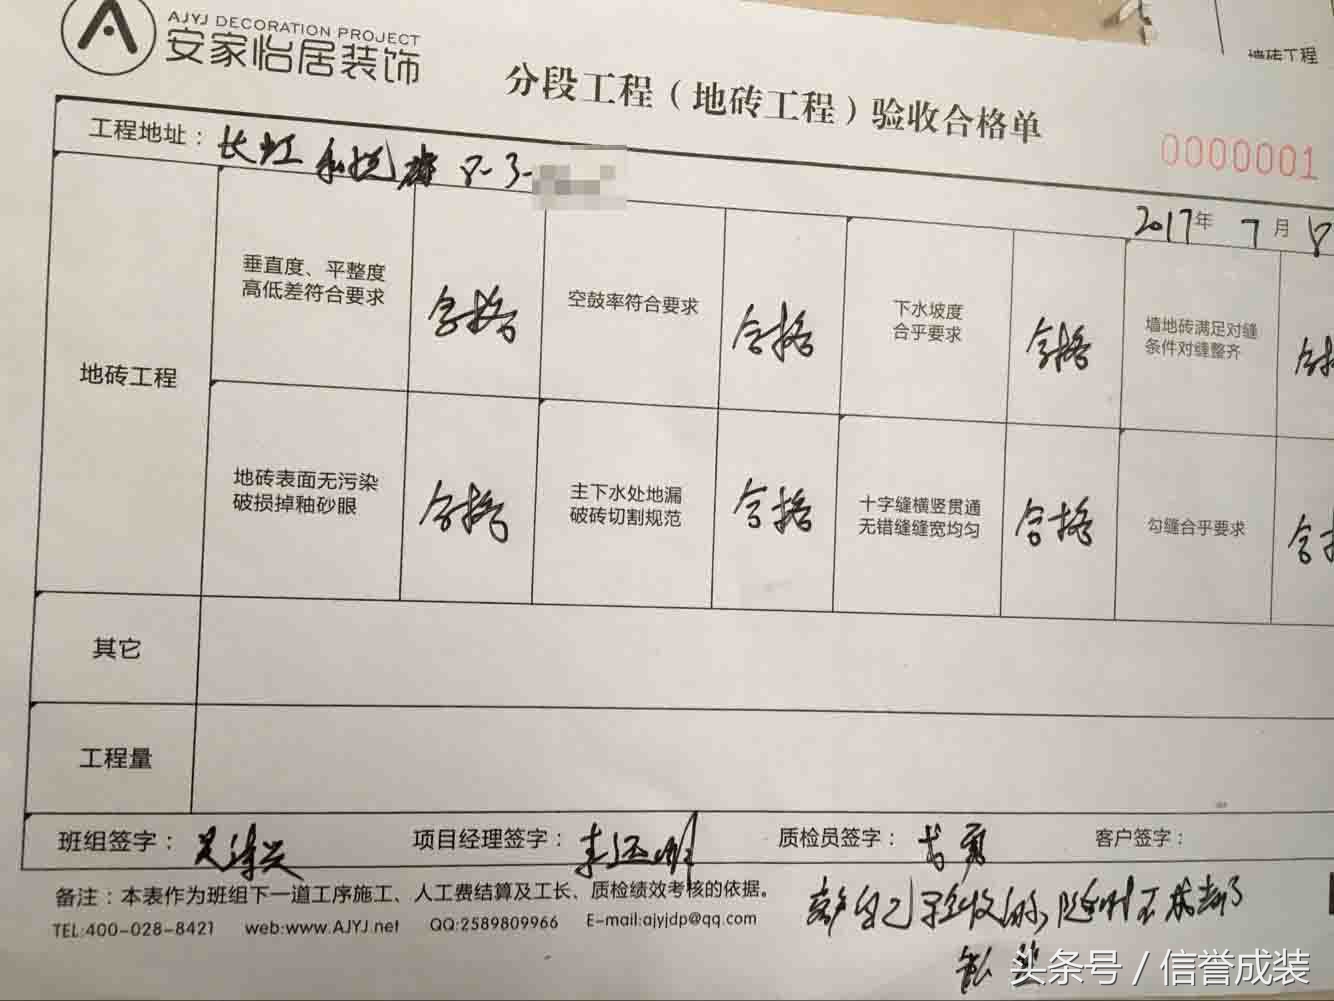 AJYJ DECORATION PROJECT
安家怡居装饰
墙砖工程
分段工程（地砖工程）验收合格单
0000001
工程地址：长虹 8-3-
2017年 7月 8
地砖工程
垂直度、平整度
高低差符合要求
合格
空鼓率符合要求
合格
下水坡度
合乎要求
合格
墙地砖满足对缝
条件对缝整齐
合格
地砖表面无污染
破损掉釉砂眼
合格
主下水处地漏
破砖切割规范
合格
十字缝横竖贯通
无错缝缝宽均匀
合格
勾缝合乎要求
合
其它
工程量
班组签字：
项目经理签字：李
质检员签字：
客户签字：
备注：本表作为班组下一道工序施工、人工费结算及工长、质检绩效考核的依据。
客户自己验收
TEL:400-028-8421 web:www.AJYJ.net QQ:2589809966 E-mail:ajyjdp@qq.com
头条号 / 信誉成装